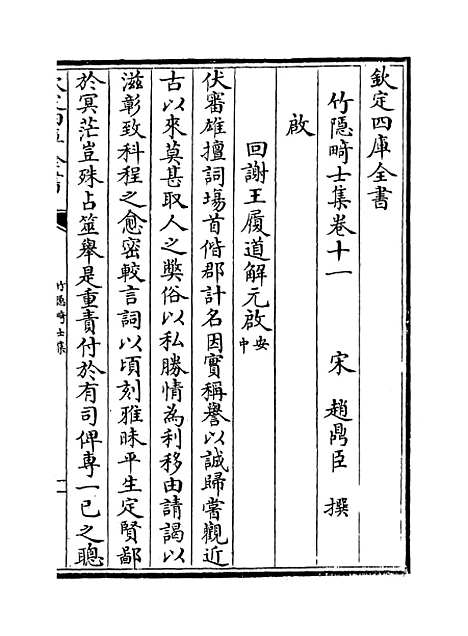 欽定四庫全書
竹隠畸士集卷十一　宋　趙鼎臣　撰
啟
回謝王履道解元啟安中
伏審雄擅詞塲首偕郡計名因實稱譽以誠歸嘗觀近
古以來莫甚取人之獘俗以私勝情為利移由請謁以
滋彰致科程之愈密較言詞以頃刻雅昧平生定賢鄙
於冥茫豈殊占筮舉是重責付於有司俾專一已之聰
竹隠畸士集
一